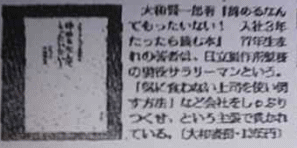 大和賢一郎著『辞めるなん
てもったいない! 入社3年
たったら読む本』 77年生ま
れの著者は、日立製作所勤務
の現役サラリーマンという。
「気に食わない上司を使い倒
す方法」など会社をしゃぶり
つくせ、という主張で貫かれ
ている。(大和書房・1300円)